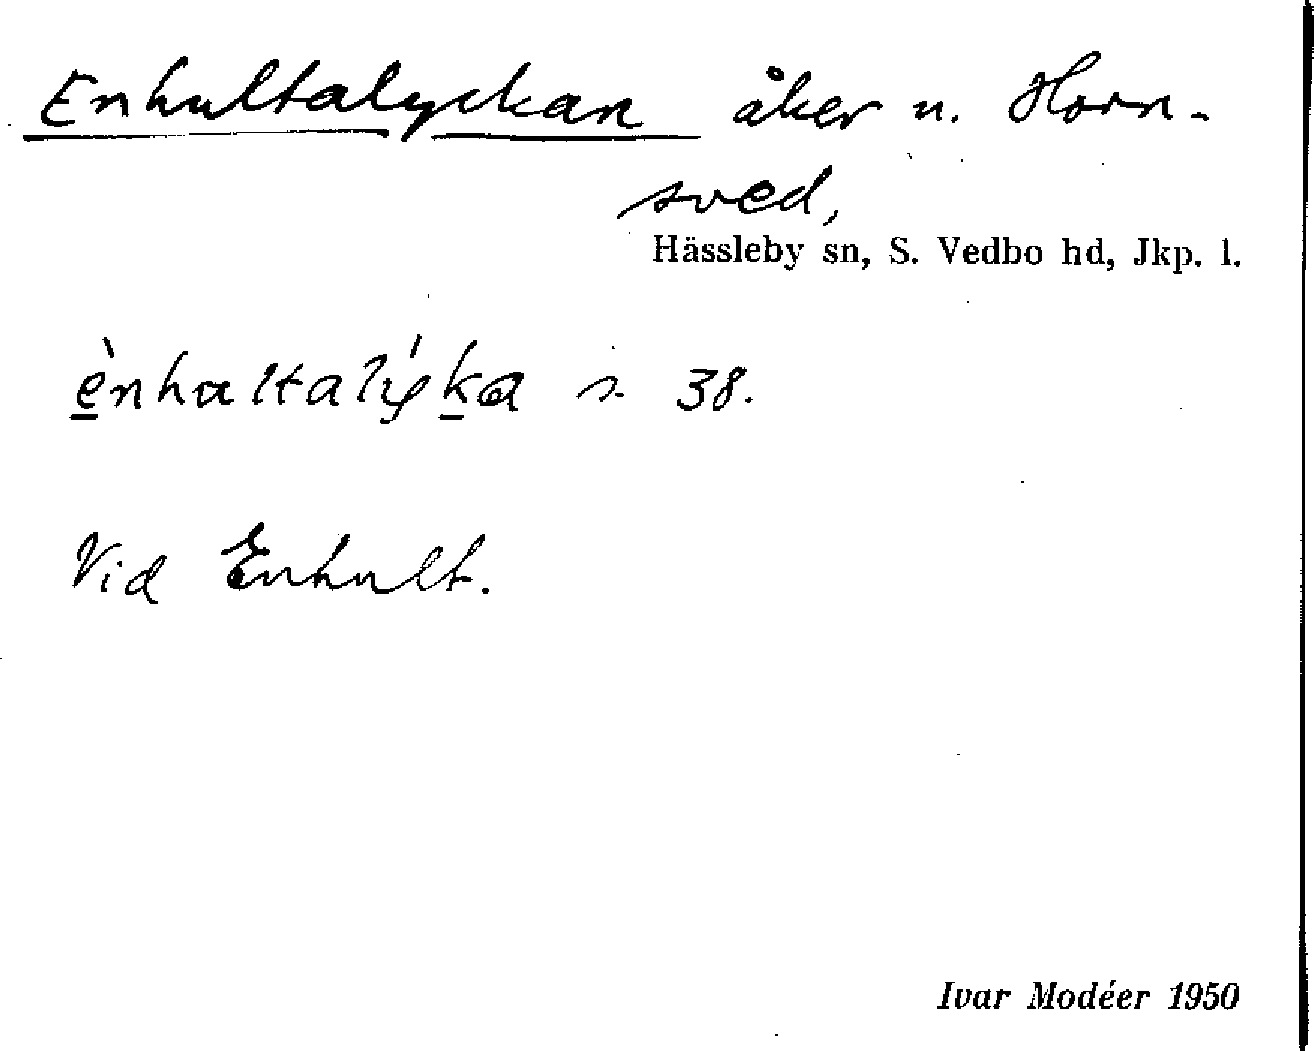 Enhultalyckan åker u. Horn-
sved,
Hässleby sn, S. Vedbo hd, Jkp. l.
s. 38.
Vid Enhult.
Ivar Modéer 1950